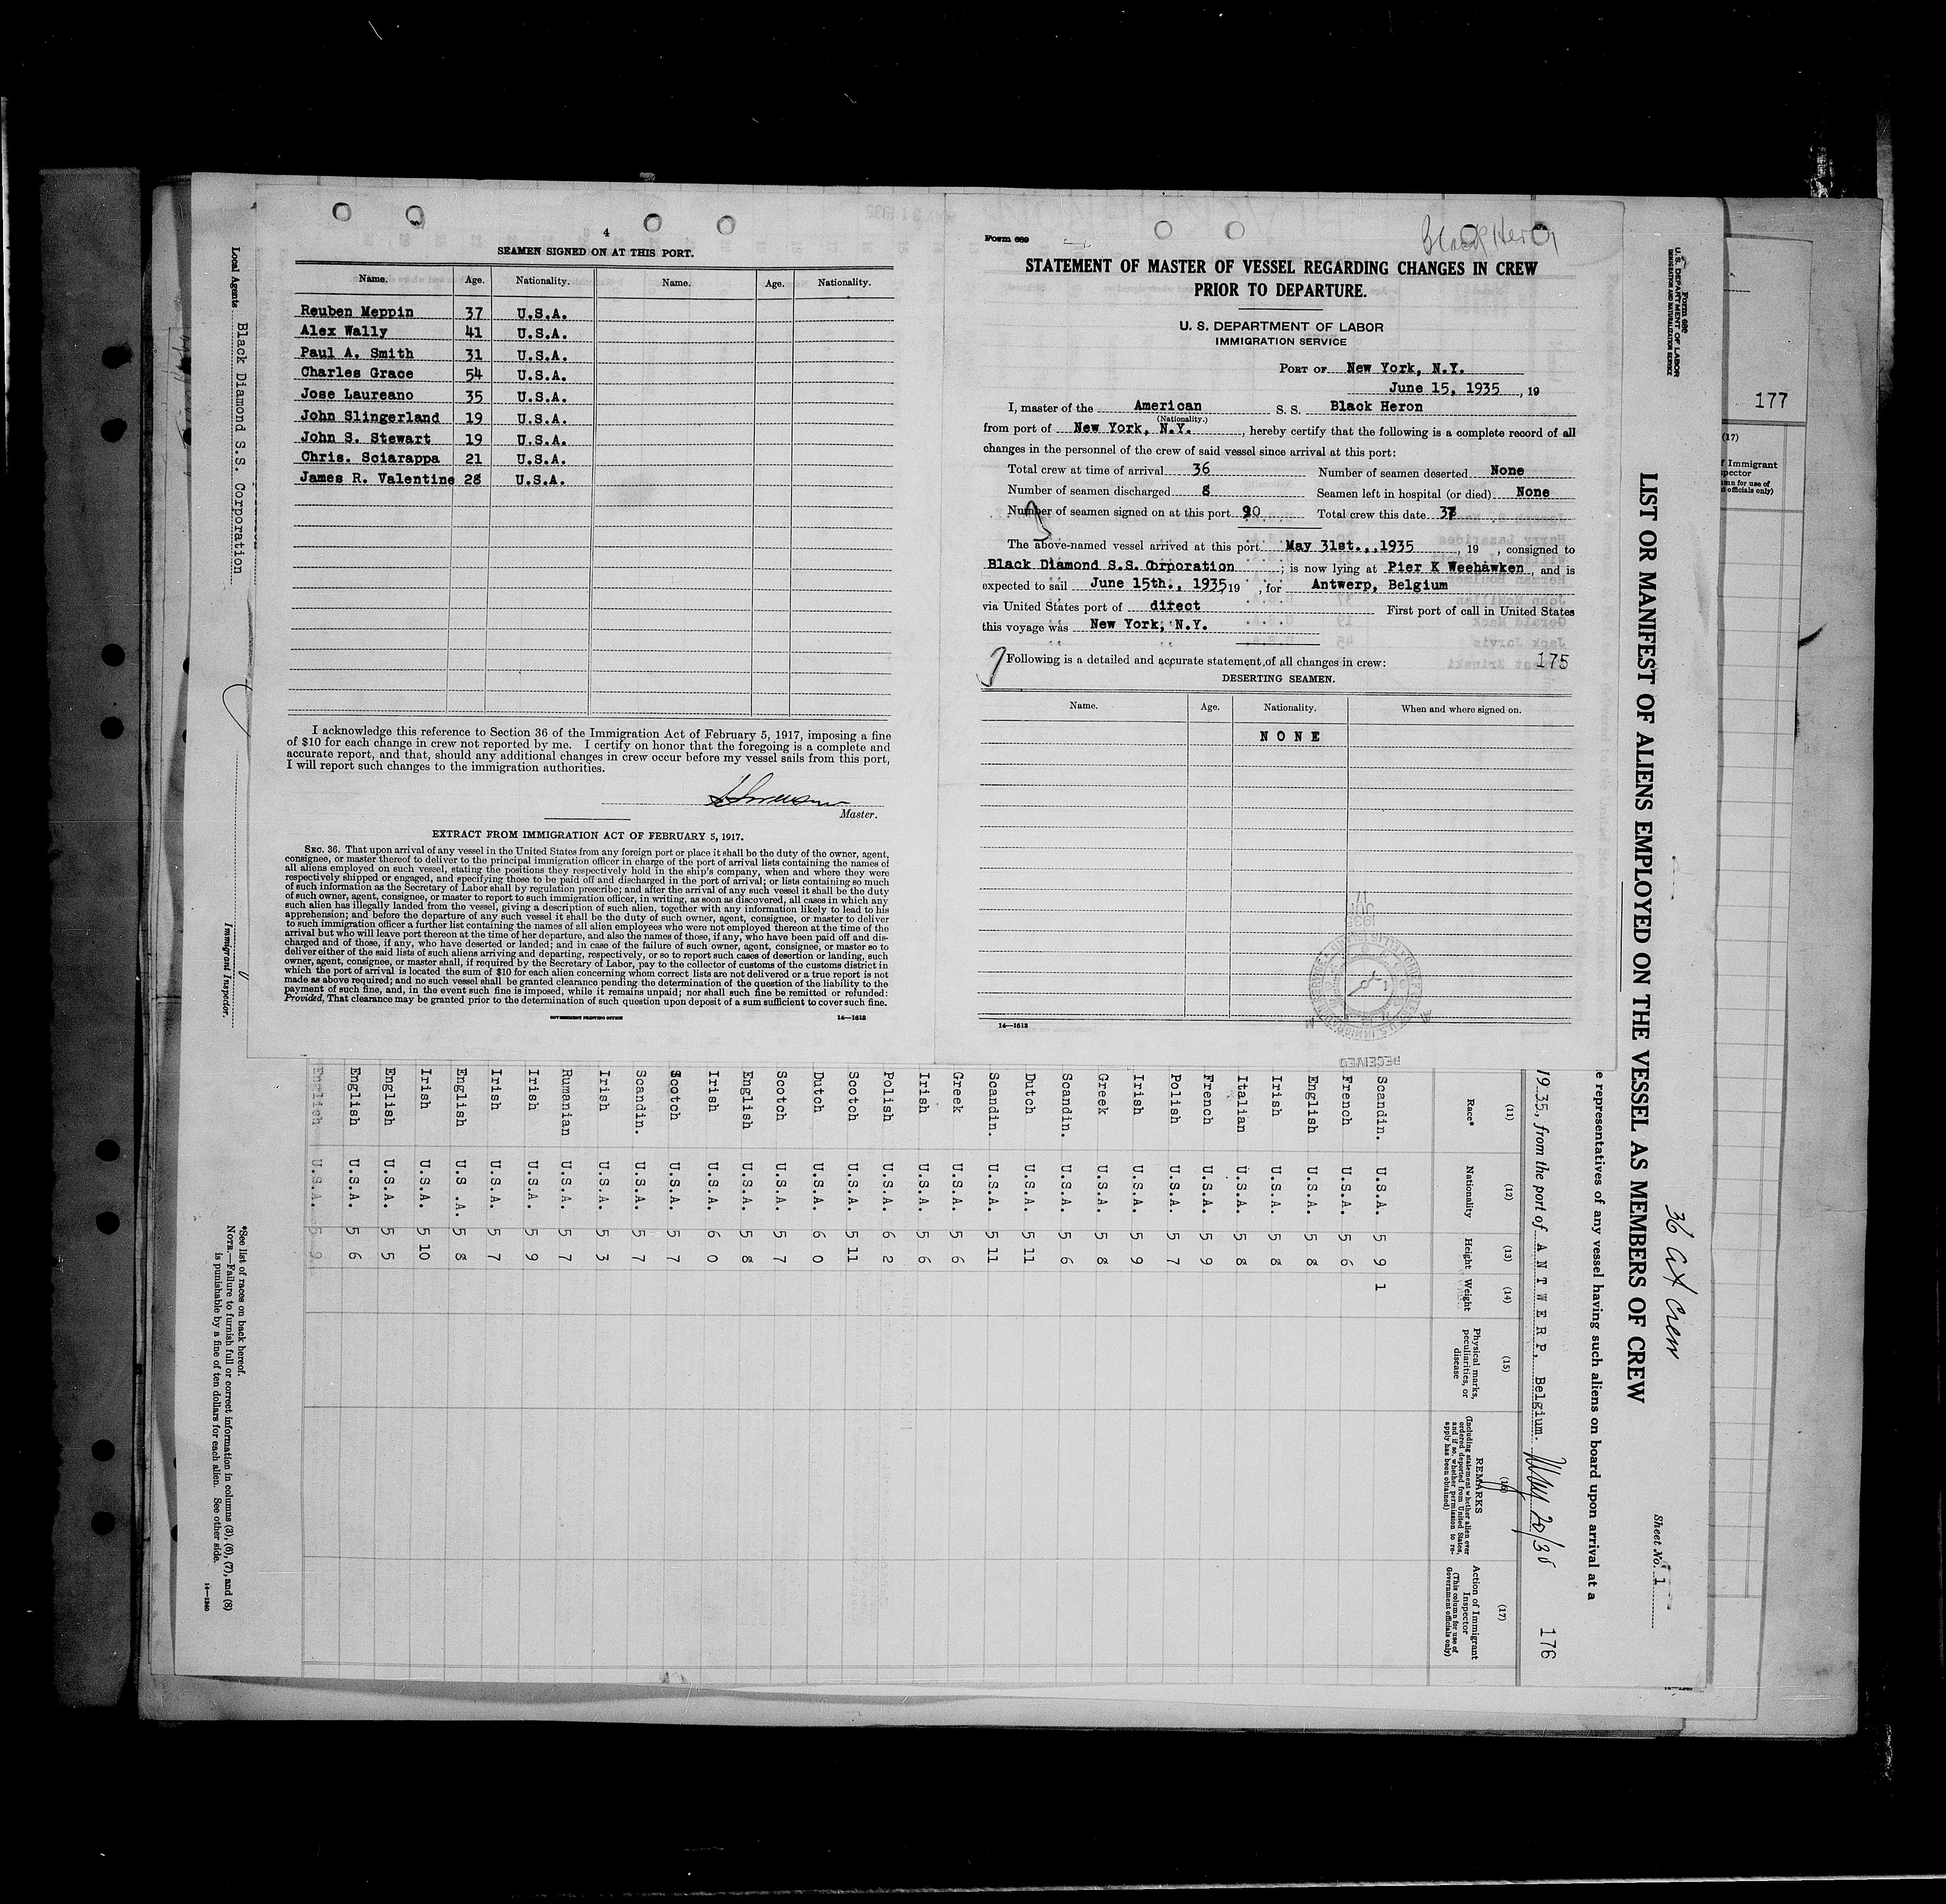 4
SEAMEN SIGNED ON AT THIS PORT.
Name. Age. Nationality. Name. Age. Nationality.
Reuben Meppin 37 U.S.A.
Alex Wally 41 U.S.A.
Paul A. Smith 31 U.S.A.
Charles Grace 54 U.S.A.
Jose Laureano 35 U.S.A.
John Slingerland 19 U.S.A.
John S. Stewart 19 U.S.A.
Chris. Sciarappa 21 U.S.A.
James R. Valentine 28 U.S.A.
I acknowledge this reference to Section 36 of the Immigration Act of February 5, 1917, imposing a fine
of $10 for each change in crew not reported by me. I certify on honor that the foregoing is a complete and
accurate report, and that, should any additional changes in crew occur before my vessel sails from this port,
I will report such changes to the immigration authorities.
Master.
EXTRACT FROM IMMIGRATION ACT OF FEBRUARY 5, 1917.
SEC. 36. That upon arrival of any vessel in the United States from any foreign port or place it shall be the duty of the owner, agent,
consignee, or master thereof to deliver to the principal immigration officer in charge of the port of arrival lists containing the names of
all aliens employed on such vessel, stating the positions they respectively hold in the ship's company, when and where they were
respectively shipped or engaged, and specifying those to be paid off and discharged in the port of arrival; or lists containing so much
of such information as the Secretary of Labor shall by regulation prescribe; and after the arrival of any such vessel it shall be the duty
of such owner, agent, consignee, or master to report to such immigration officer, in writing, as soon as discovered, all cases in which any
such alien has illegally landed from the vessel, giving a description of such alien, together with any information likely to lead to his
apprehension; and before the departure of any such vessel it shall be the duty of such owner, agent, consignee, or master to deliver
to such immigration officer a further list containing the names of all alien employees who were not employed thereon at the time of the
arrival but who will leave port thereon at the time of her departure, and also the names of those, if any, who have been paid off and dis-
charged and of those, if any, who have deserted or landed; and in case of the failure of such owner, agent, consignee, or master so to
deliver either of the said lists of such aliens arriving and departing, respectively, or so to report such cases of desertion or landing, such
owner, agent, consignee, or master shall, if required by the Secretary of Labor, pay to the collector of customs of the customs district in
which the port of arrival is located the sum of $10 for each alien concerning whom correct lists are not delivered or a true report is not
made as above required; and no such vessel shall be granted clearance pending the determination of the question of the liability to the
payment of such fine, and, in the event such fine is imposed, while it remains unpaid; nor shall such fine be remitted or refunded:
Provided, That clearance may be granted prior to the determination of such question upon deposit of a sum sufficient to cover such fine.
GOVERNMENT PRINTING OFFICE 14—1613
Form 689
Black Heron
STATEMENT OF MASTER OF VESSEL REGARDING CHANGES IN CREW
PRIOR TO DEPARTURE.
U. S. DEPARTMENT OF LABOR
IMMIGRATION SERVICE
PORT OF New York, N.Y.
June 15, 1935, 19
I, master of the American S. S. Black Heron
(Nationality.)
from port of New York, N.Y., hereby certify that the following is a complete record of all
changes in the personnel of the crew of said vessel since arrival at this port:
Total crew at time of arrival 36 Number of seamen deserted None
Number of seamen discharged 8 Seamen left in hospital (or died) None
Number of seamen signed on at this port Total crew this date 37
The above-named vessel arrived at this port May 31st., 1935, 19 , consigned to
Black Diamond S.S. Corporation; is now lying at Pier K Weehawken, and is
expected to sail June 15th., 1935, 19 , for Antwerp, Belgium
via United States port of direct First port of call in United States
this voyage was New York, N.Y.
Following is a detailed and accurate statement of all changes in crew: 175
DESERTING SEAMEN.
Name. Age. Nationality. When and where signed on.
NONE
14—1613
RECEIVED
Form 680
U.S. DEPARTMENT OF LABOR
IMMIGRATION AND NATURALIZATION SERVICE
36 at Crew
Sheet No. 1
LIST OR MANIFEST OF ALIENS EMPLOYED ON THE VESSEL AS MEMBERS OF CREW
e representatives of any vessel having such aliens on board upon arrival at a
1935, from the port of ANTWERP, Belgium. May 20/35 176
(11) (12) (13) (14) (15) (16) (17)
Race* Nationality Height Weight Physical marks, peculiarities, or disease REMARKS (Including statement whether alien ever ordered deported from United States, and if so, whether permission to re-apply has been obtained) Action of Immigrant Inspector (This column for use of Government officials only)
Scandin. U.S.A. 5 9 1
French U.S.A. 5 6
English U.S.A. 5 8
Irish U.S.A. 5 8
Italian U.S.A. 5 8
French U.S.A. 5 9
Polish U.S.A. 5 7
Irish U.S.A. 5 9
Greek U.S.A. 5 8
Scandin. U.S.A. 5 6
Dutch U.S.A. 5 11
Scandin. U.S.A. 5 11
Greek U.S.A. 5 6
Irish U.S.A. 5 6
Polish U.S.A. 6 2
Scotch U.S.A. 5 11
Dutch U.S.A. 6 0
Scotch U.S.A. 5 7
English U.S.A. 5 8
Irish U.S.A. 6 0
Scotch U.S.A. 5 7
Scandin. U.S.A. 5 7
Irish U.S.A. 5 3
Rumanian U.S.A. 5 7
Irish U.S.A. 5 9
Irish U.S.A. 5 7
English US .A. 5 8
Irish U.S.A. 5 10
English U.S.A. 5 5
English U.S.A. 5 6
English U.S.A. 5 9
Local Agents Black Diamond S.S. Corporation
Immigrant Inspector.
*See list of races on back hereof.
NOTE.—Failure to furnish full or correct information in columns (3), (6), (7), and (8)
is punishable by a fine of ten dollars for each alien. See other side.
14—1240
177
(17)
f Immigrant
pector
umn for use of
officials only)